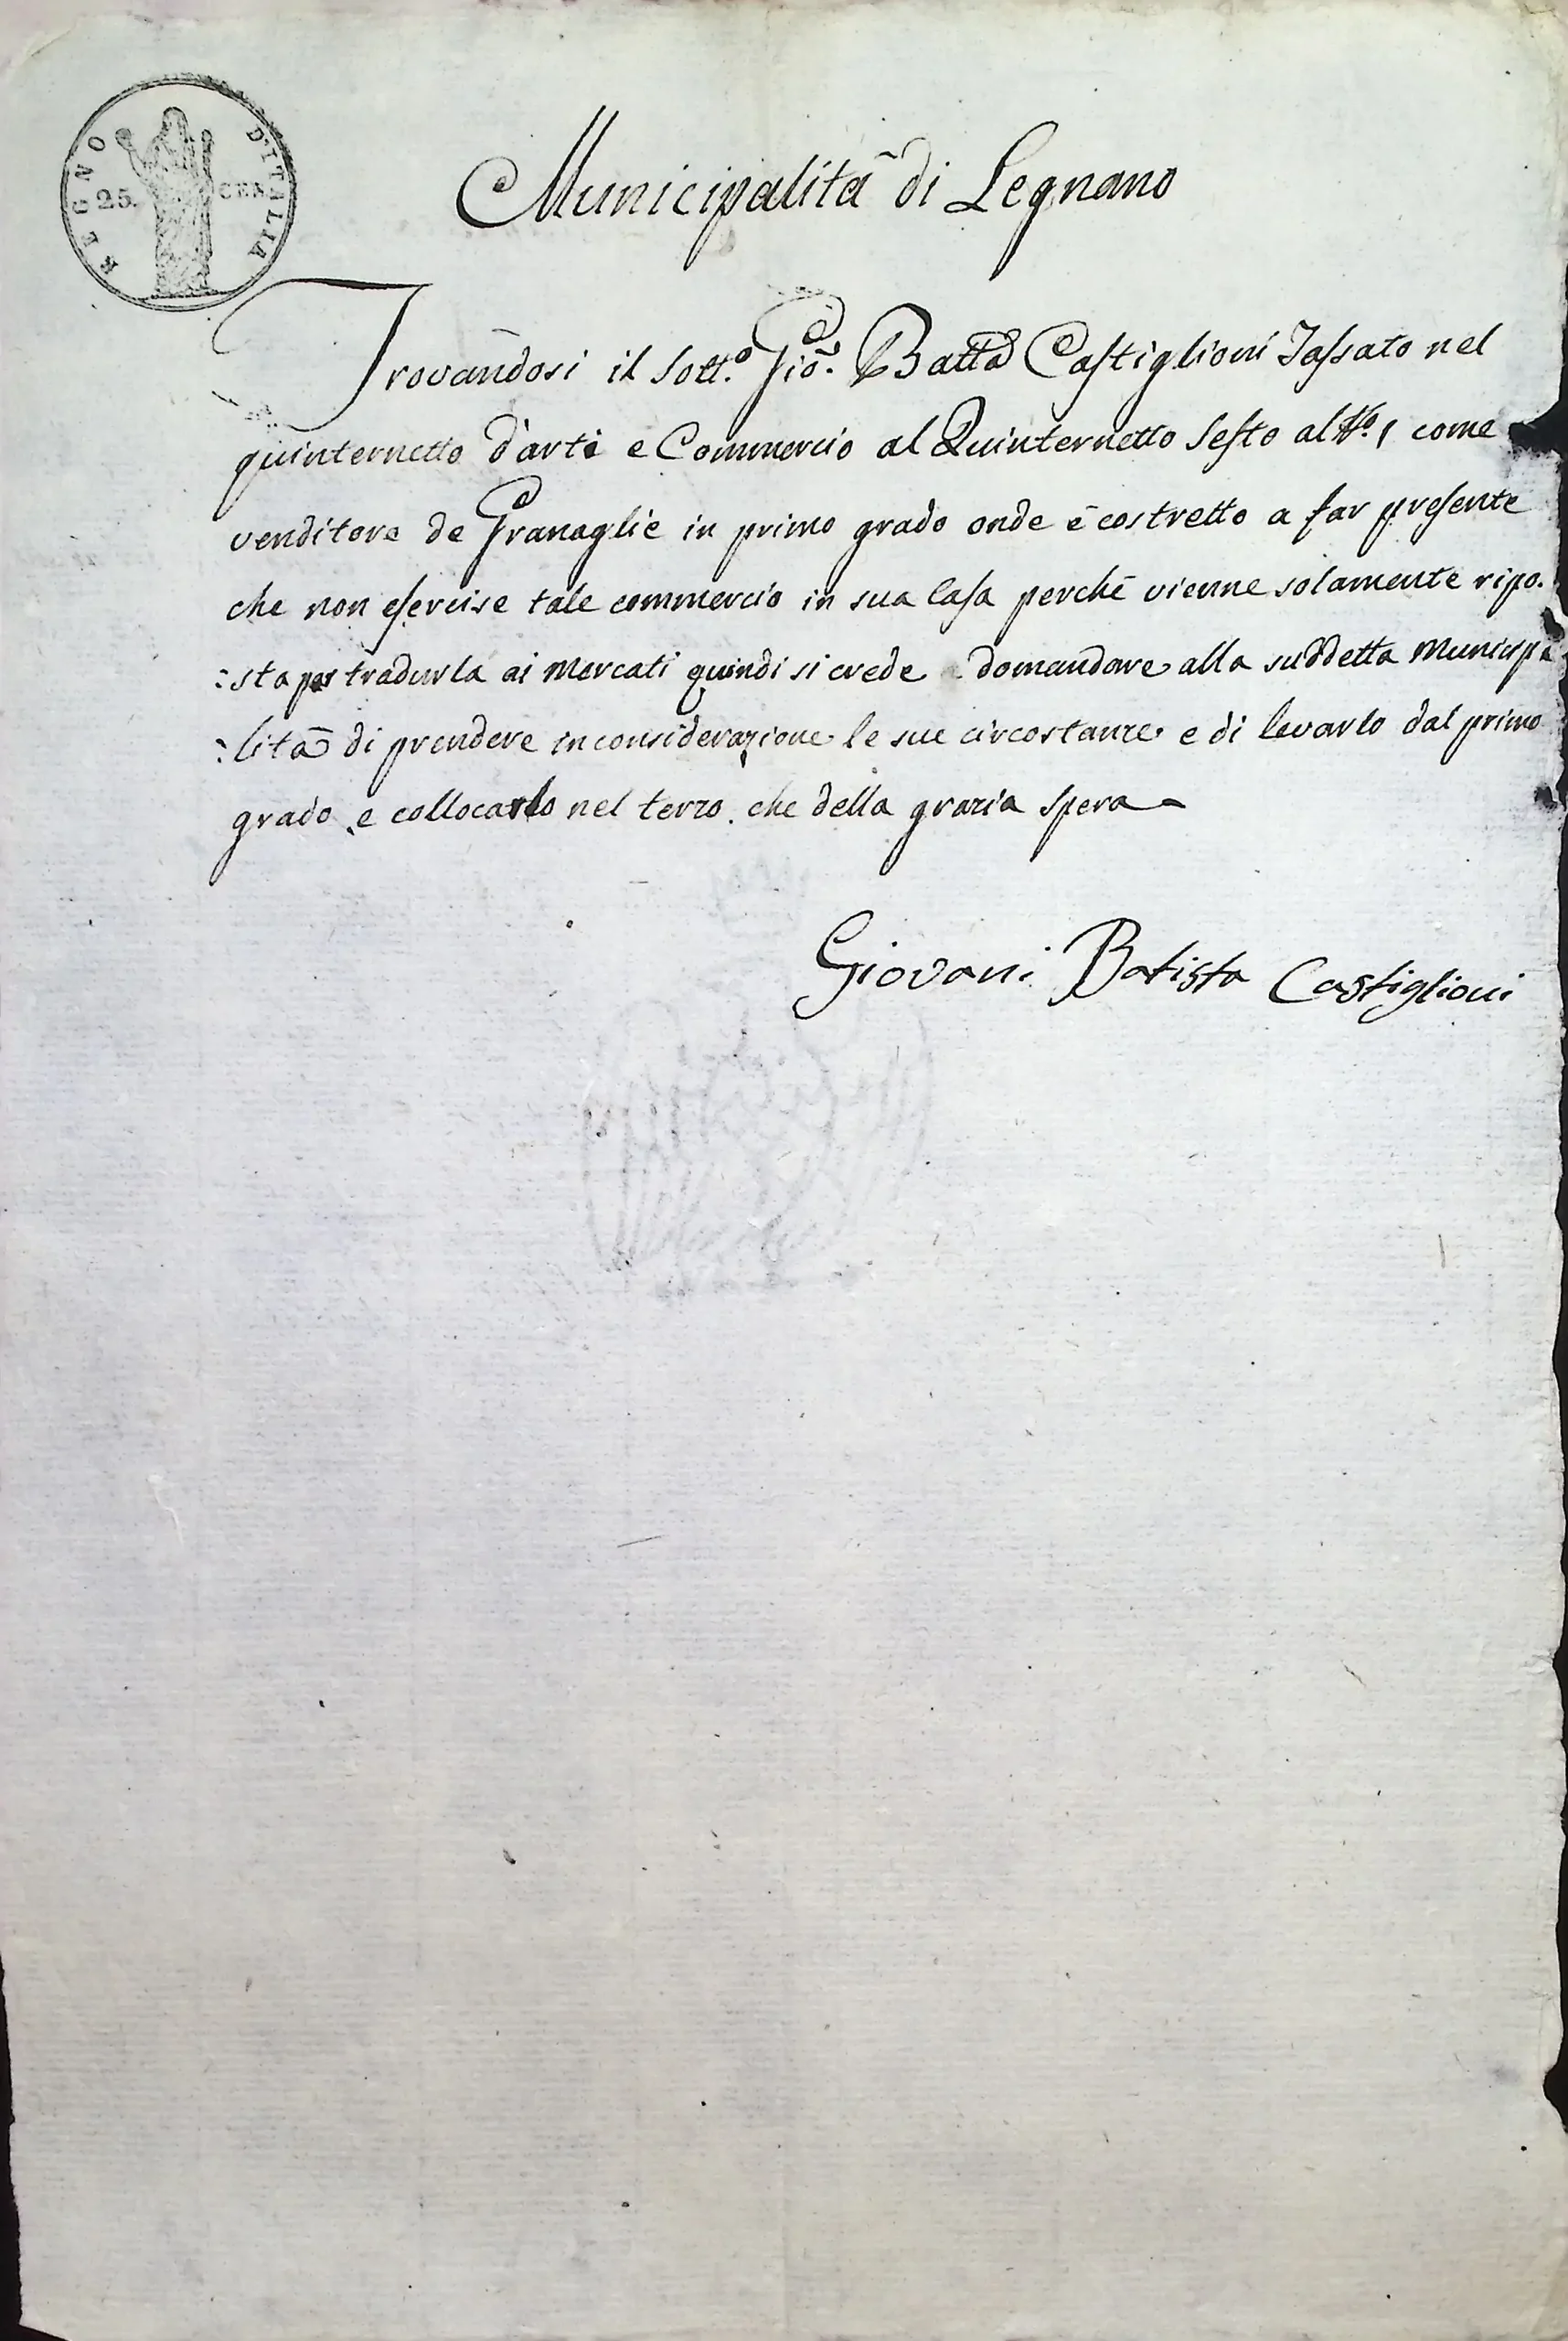 REGNO D'ITALIA
25. CEN.
Municipalità di Legnano
Trovandosi il Sott.º Gio. Batta Castiglioni Tassato nel
quinternetto d'arti e Commercio al Quinternetto Sesto al Nº. 1 come
venditore de Granaglie in primo grado onde è costretto a far presente
che non esercise tale commercio in sua Casa perchè vienne solamente ripo.
:sta per tradurla ai Mercati quindi si crede domandare alla suddetta Municipa
:lità di prendere in considerazione le sue circostanze e di levarlo dal primo
grado e collocarlo nel terzo. che della grazia spera
Giovani Batista Castiglioni